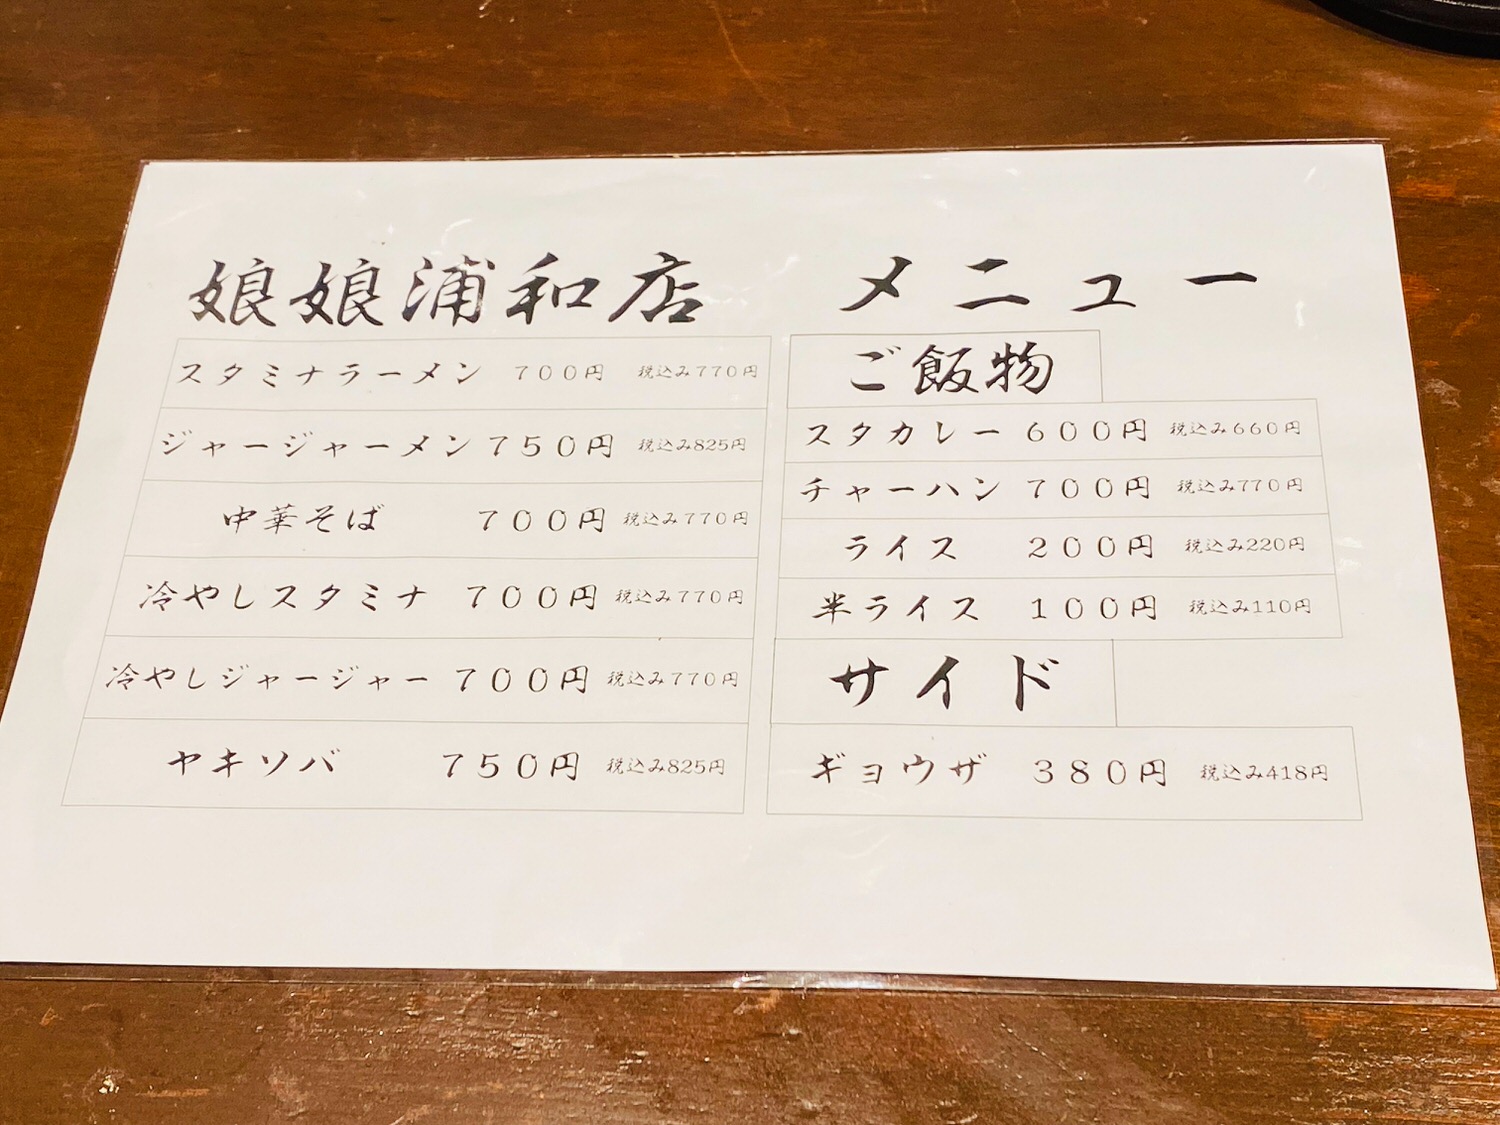 娘娘浦和店 メニュー
スタミナラーメン 700円 税込み770円
ジャージャーメン 750円 税込み825円
中華そば 700円 税込み770円
冷やしスタミナ 700円 税込み770円
冷やしジャージャー 700円 税込み770円
ヤキソバ 750円 税込み825円
ご飯物
スタカレー 600円 税込み660円
チャーハン 700円 税込み770円
ライス 200円 税込み220円
半ライス 100円 税込み110円
サイド
ギョウザ 380円 税込み418円